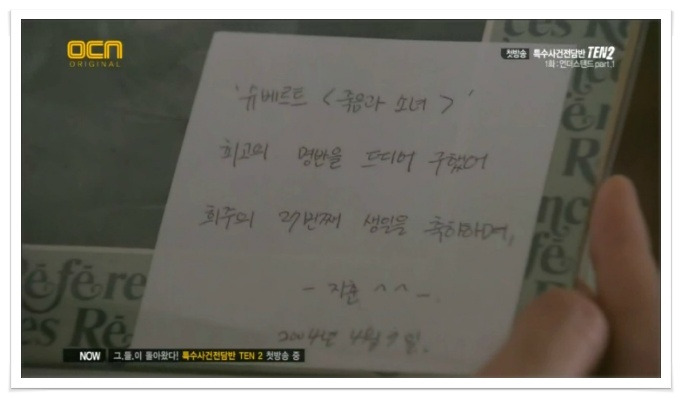 OCN
ORIGINAL
첫방송 특수사건전담반 TEN2
1회 : 언더스탠드 part.1
'슈베르트 <죽음과 소녀>'
최고의 명반을 드디어 구했어
희주의 27번째 생일을 축하하며,
- 지훈 ^^ -
2004년 4월 9일.
éfére
es Ré
NOW 그.들.이 돌아왔다! 특수사건전담반 TEN 2 첫방송 중